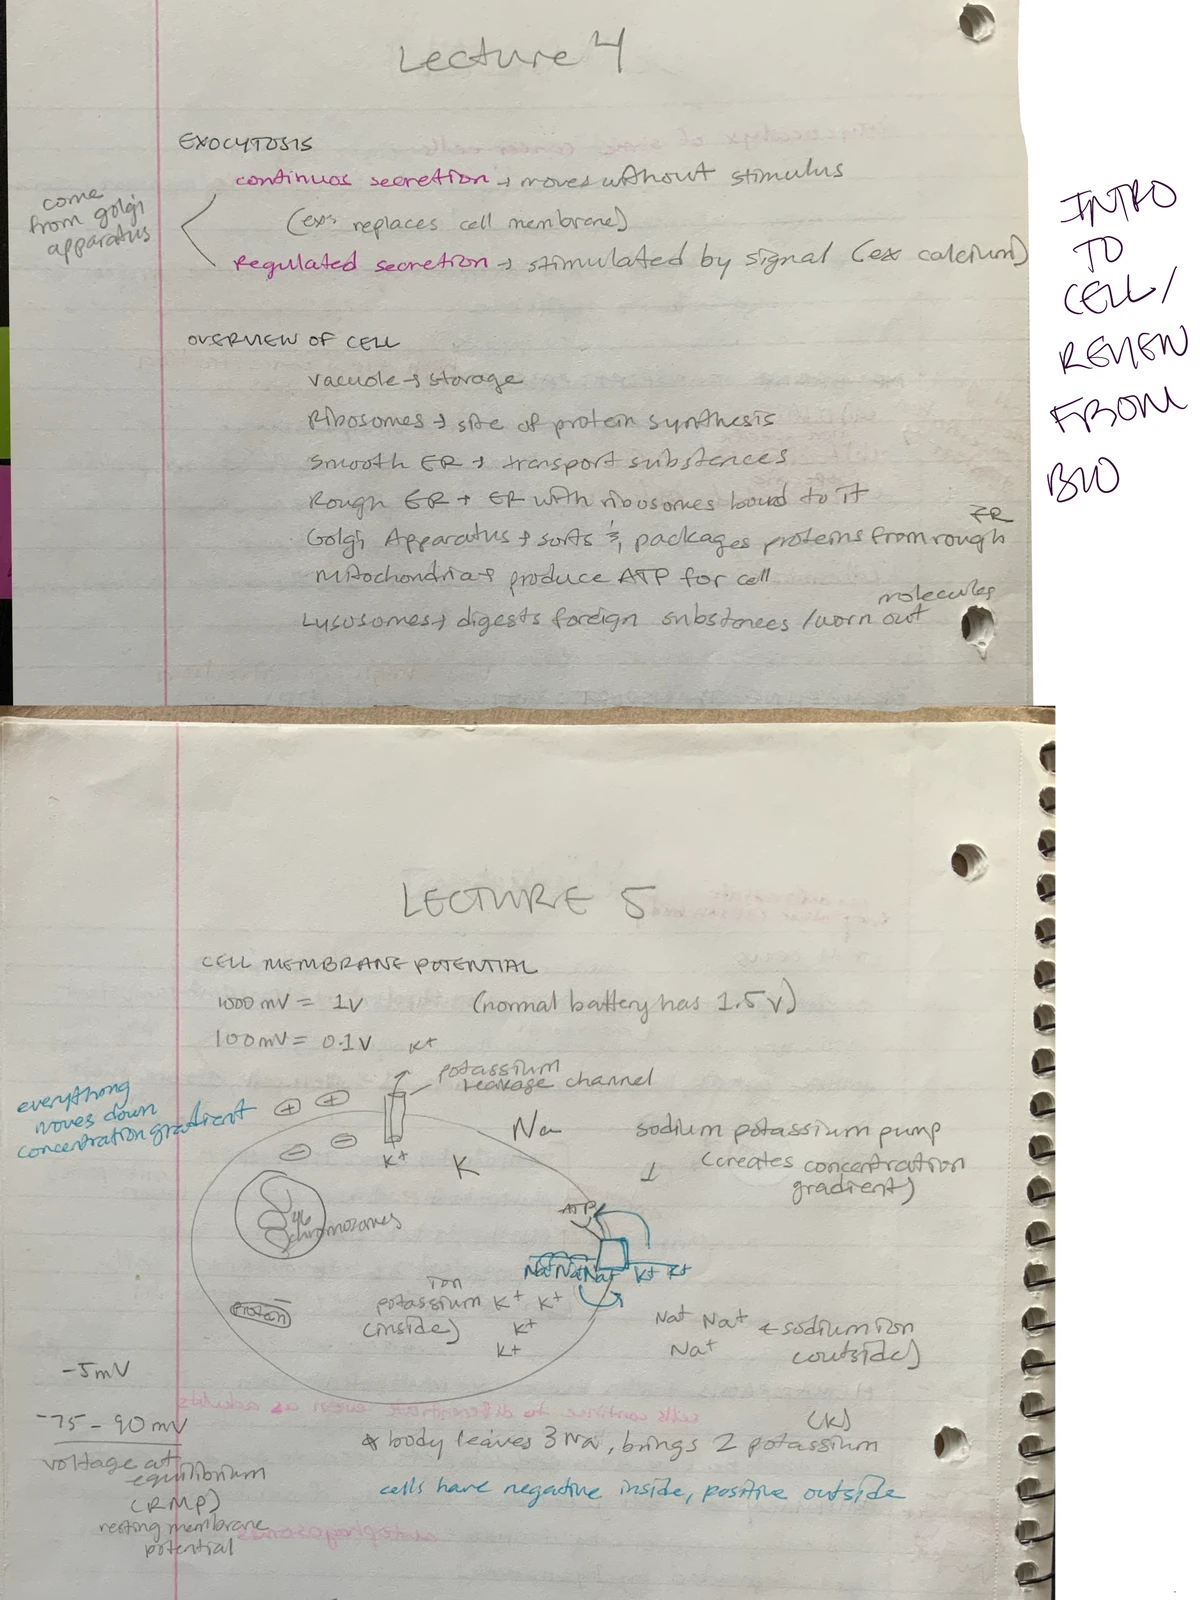 Lecture 4
EXOCYTOSIS
continuos secretion → moves without stimulus
(exs replaces cell membrane)
Regulated secretion → stimulated by signal (ex calcium)
come
from golgi
apparatus
INTRO
TO
CELL/
REVIEW
FROM
BIO
OVERVIEW OF CELL
vacuole → storage
Ribosomes → site of protein synthesis
Smooth ER → transport substances
Rough ER → ER with ribosomes bound to it
Golgi Apparatus → sorts & packages proteins from rough ER
Mitochondria → produce ATP for cell
Lysosomes → digests foreign substances / worn out molecules
LECTURE 5
CELL MEMBRANE POTENTIAL
1000 mV = 1V (normal battery has 1.5 V)
100mV = 0.1V
K+
potassium
leakage channel
everything
moves down
concentration gradient
+ +
- -
K+
K
Na
sodium potassium pump
(creates concentration
gradient)
ATP
46
chromosomes
Na+ Na+ Na+ K+ K+
protein -
ion
potassium
(inside)
K+ K+
K+
K+
Na+ Na+
Na+
← sodium ion
(outside)
-5mV
-75 - 90 mV
voltage at
equilibrium
(RMP)
resting membrane
potential
* body leaves 3 Na, brings 2 potassium (K)
cells have negative inside, positive outside